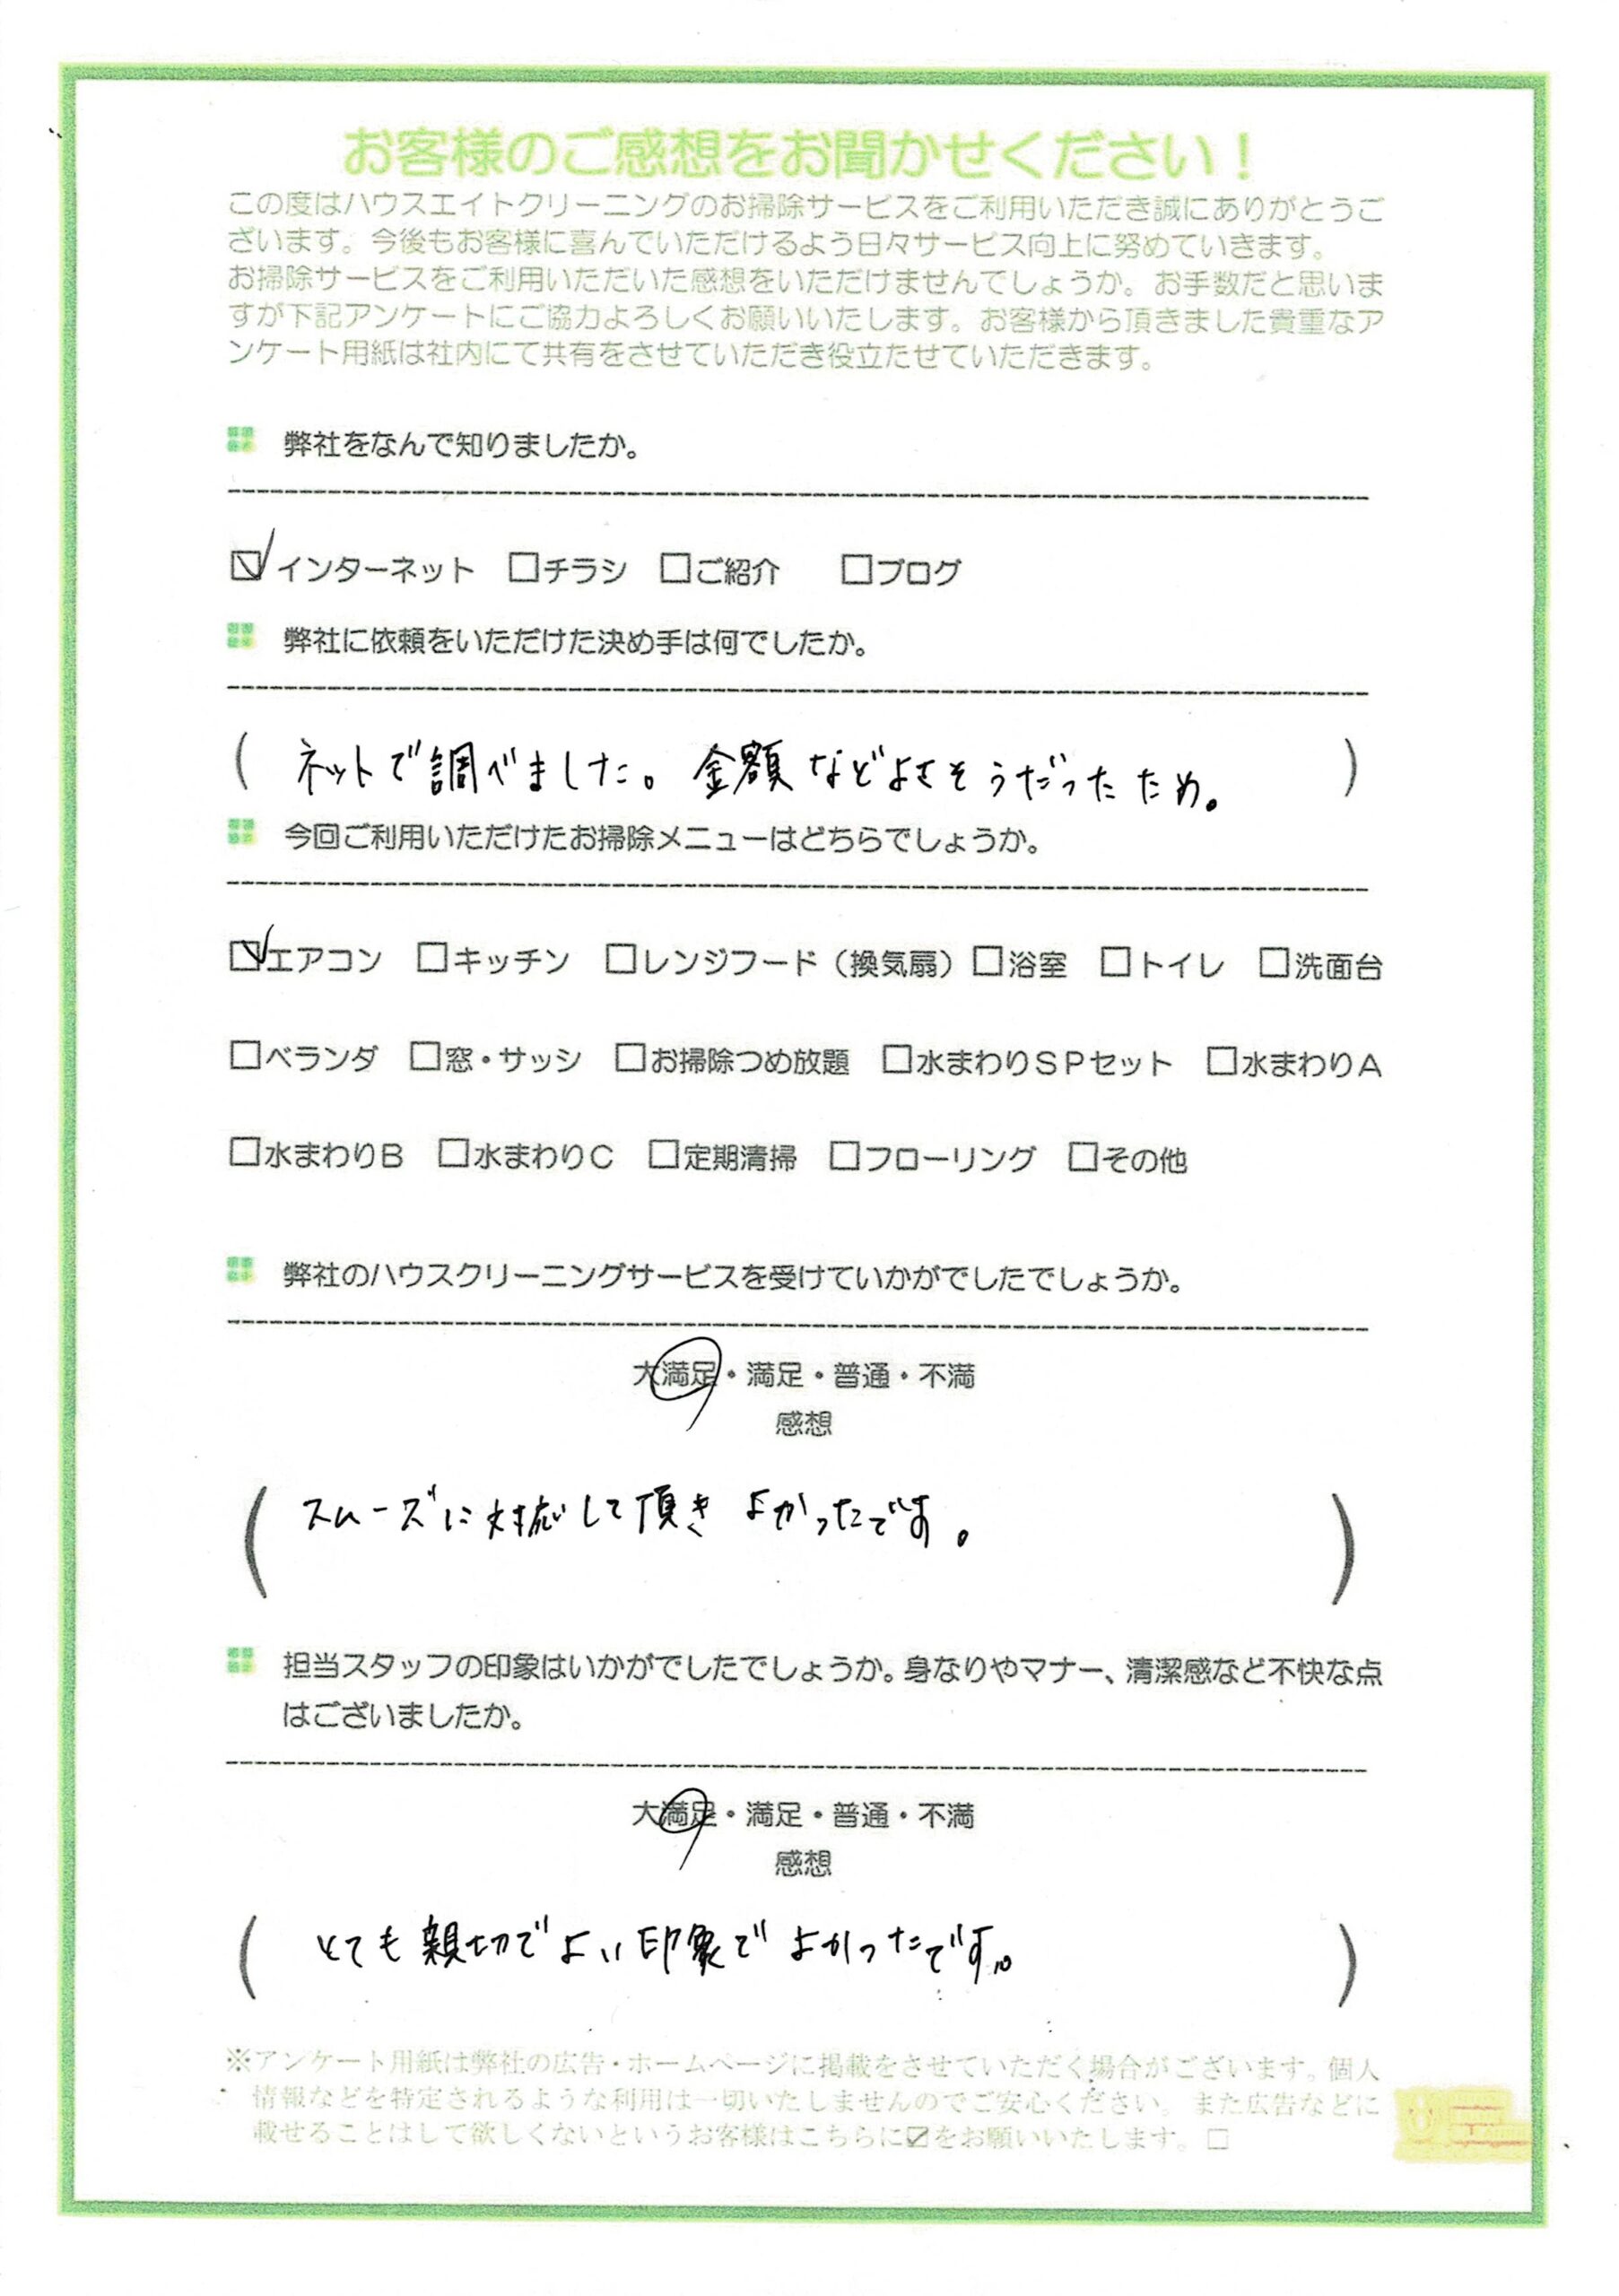 お客様のご感想をお聞かせください！
この度はハウスエイトクリーニングのお掃除サービスをご利用いただき誠にありがとうご
ざいます。今後もお客様に喜んでいただけるよう日々サービス向上に努めていきます。
お掃除サービスをご利用いただいた感想をいただけませんでしょうか。お手数だと思いま
すが下記アンケートにご協力よろしくお願いいたします。お客様から頂きました貴重なア
ンケート用紙は社内にて共有をさせていただき役立たせていただきます。
弊社をなんで知りましたか。
☑インターネット □チラシ □ご紹介 □ブログ
弊社に依頼をいただけた決め手は何でしたか。
（ネットで調べました。金額などよさそうだったため。）
今回ご利用いただけたお掃除メニューはどちらでしょうか。
☑エアコン □キッチン □レンジフード（換気扇）□浴室 □トイレ □洗面台
□ベランダ □窓・サッシ □お掃除つめ放題 □水まわりＳＰセット □水まわりＡ
□水まわりＢ □水まわりＣ □定期清掃 □フローリング □その他
弊社のハウスクリーニングサービスを受けていかがでしたでしょうか。
大満足・満足・普通・不満
感想
（スムーズに対応して頂きよかったです。）
担当スタッフの印象はいかがでしたでしょうか。身なりやマナー、清潔感など不快な点
はございましたか。
大満足・満足・普通・不満
感想
（とても親切でよい印象でよかったです。）
※アンケート用紙は弊社の広告・ホームページに掲載をさせていただく場合がございます。個人
情報などを特定されるような利用は一切いたしませんのでご安心ください。また広告などに
載せることはして欲しくないというお客様はこちらに☑をお願いいたします。□